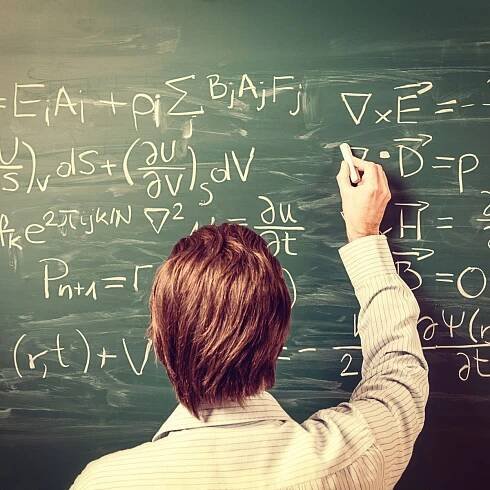 = EᵢAᵢ + ρᵢ Σ BⱼAⱼFⱼ
∇×E⃗ = -
)ᵥ dS + (∂U/∂V)ₛ dV
· D⃗ = ρ
e^2πijk/N ∇² u = ∂u/∂t
H⃗ =
Pₙ₊₁ = r
B = 0
(r,t) + V
- 1/2
∂Ψ(r
∂t